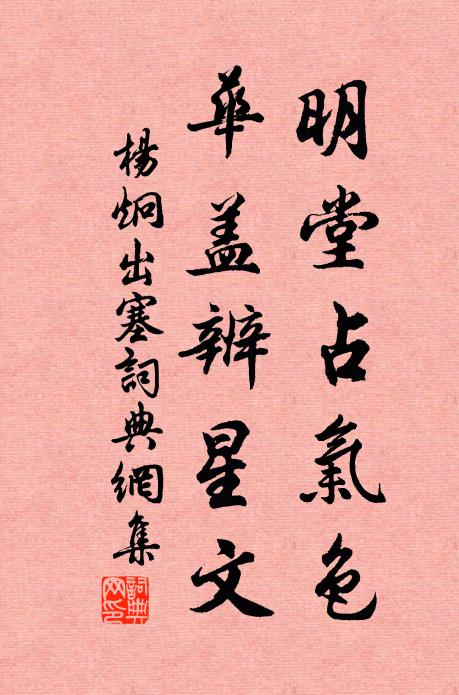 明堂占氣色
華盖辨星文
楊炯出塞詞典網集
詞典网印